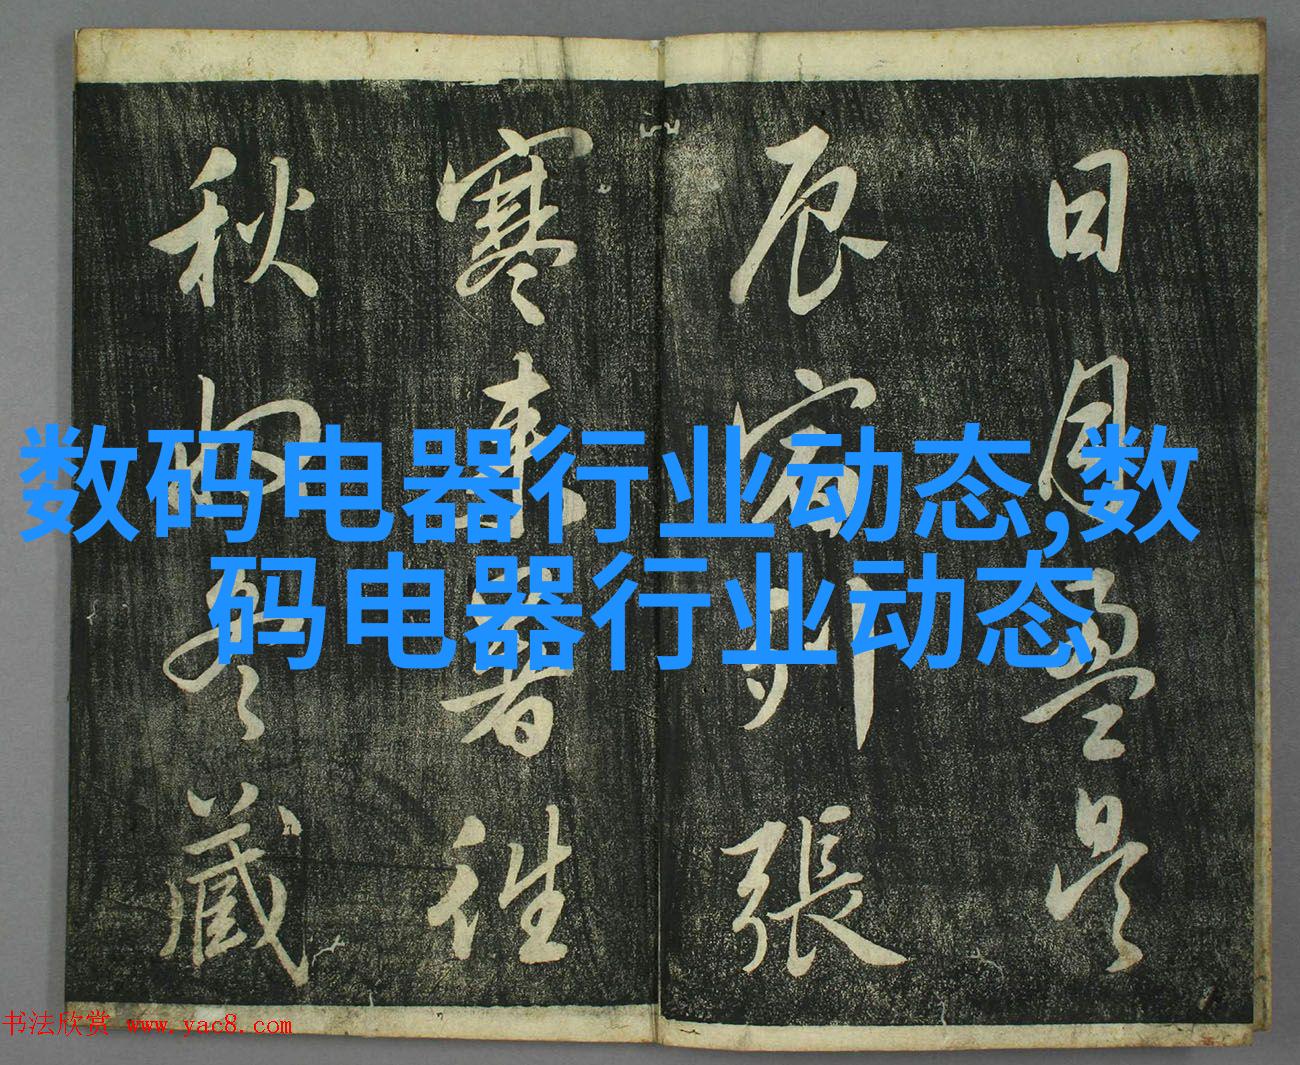 日月盈昃
辰宿列張
寒来暑往
秋收冬藏
数码电器行业动态,数
码电器行业动态
书法欣赏 www.yac8.com